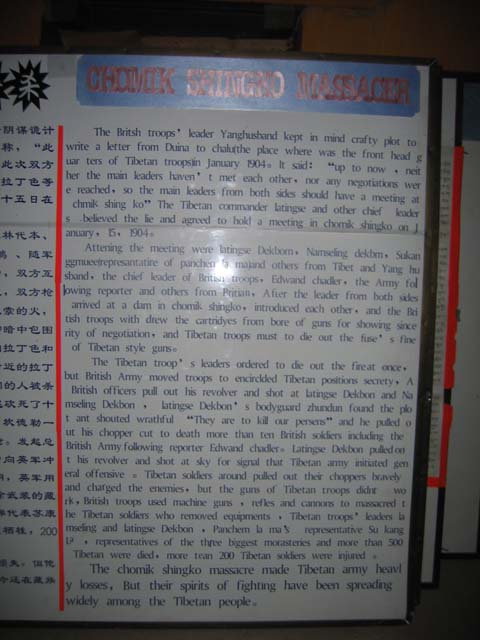 CHOMIK SHINGKO MASSACER
The Britsh troops' leader Yanghusband kept in mind crafty plot to
write a letter from Duina to chalu(the place where was the front head g
uar ters of Tibetan troops)in January 1904。It said: "up to now , neit
her the main leaders haven' t met each other, nor any negotiations wer
e reached, so the main leaders from both sides should have a meeting at
chmik shing ko" The Tibetan commander latingse and other chief leader
s .believed the lie and agreed to hold a meeting in chomik shingko on J
anuary, 15, 1904。
Attening the meeting were latingse Dekbom, Namseling dekbm, Sukan
ggmuee(represantatire of panchen la ma)and others from Tibet and Yang hu
sband, the chief leader of British troops, Edward chadler, the Army fol
lowing reporter and others from Britian, After the leader from both sides
arrived at a dam in chomik shingko, introduced each other, and the Bri
tish troops with drew the cartridyes from bore of guns for showing since
rity of negotiation, and Tibetan troops must to die out the fuse' s fine
of Tibetan style guns。
The Tibetan troop' s leaders ordered to die out the fire at once,
but British Army moved troops to encirclded Tibetan positions secrety, A
British officers pull out his revolver and shot at latingse Dekbon and Na
mseling Dekbon , latingse Dekbon' s bodyguard zhundun found the plo
t ant shouted wrathful "They are to kill our persens" and he pulled o
ut his chopper cut to death more then ten British soldiers including the
British Army following reporter Edward chadler。Latingse Dekbon pulled on
t his revolver and shot at sky for signal that Tibetan army initiated gen
eral offensive 。Tibetan soldiers around pulled out their choppers bravely
and chafged the enemies, but the guns of Tibetan troops didnt wo
rk, British troops used machine guns , refles and cannons to massacred t
he Tibetan soldiers who removed equipments , Tibetan troops' leaders la
mseling and latingse Dekbon , Panchem la ma's representative Su kang
, representatives of the three biggest morasteries and more than 500
Tibetan were died, more tran 200 Tibetan soldiers were injured 。
The chomik shingko massacre made Tibetan army heavl
y losses, But their spirits of fighting have been spreading
widely among the Tibetan people。
阴谋诡计
称，“此
此次双方
拉丁色等
十五日在
林代本、
、随军
，双方互
，双方枪
的火，
中暗中包围
拉丁色和
近的拉丁
的人被杀
砍死了十
。发起总
向英军冲
，英军用
武装的藏
代表苏康
牺牲，200